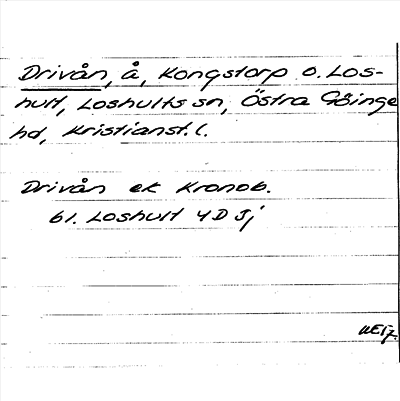 Drivån, å, Kongstorp o. Los-
hult, Loshults sn, Östra Göinge
hd, Kristianst. l.
Drivån ek Kronob.
61. Loshult 4D Sj